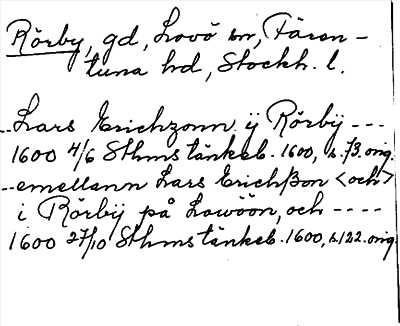 Rörby, gd, Lovö sn, Fären-
tuna hd, Stockh. l.
--Lars Erichzonn ÿ Rörbÿ ---
1600 4/6 Sthms tänkeb. 1600, s. 73. orig.
--emellann Lars Erichßon <och>
i Rörbÿ på Lowöön, och ----
1600 27/10 Sthms tänkeb. 1600, s. 122. orig.